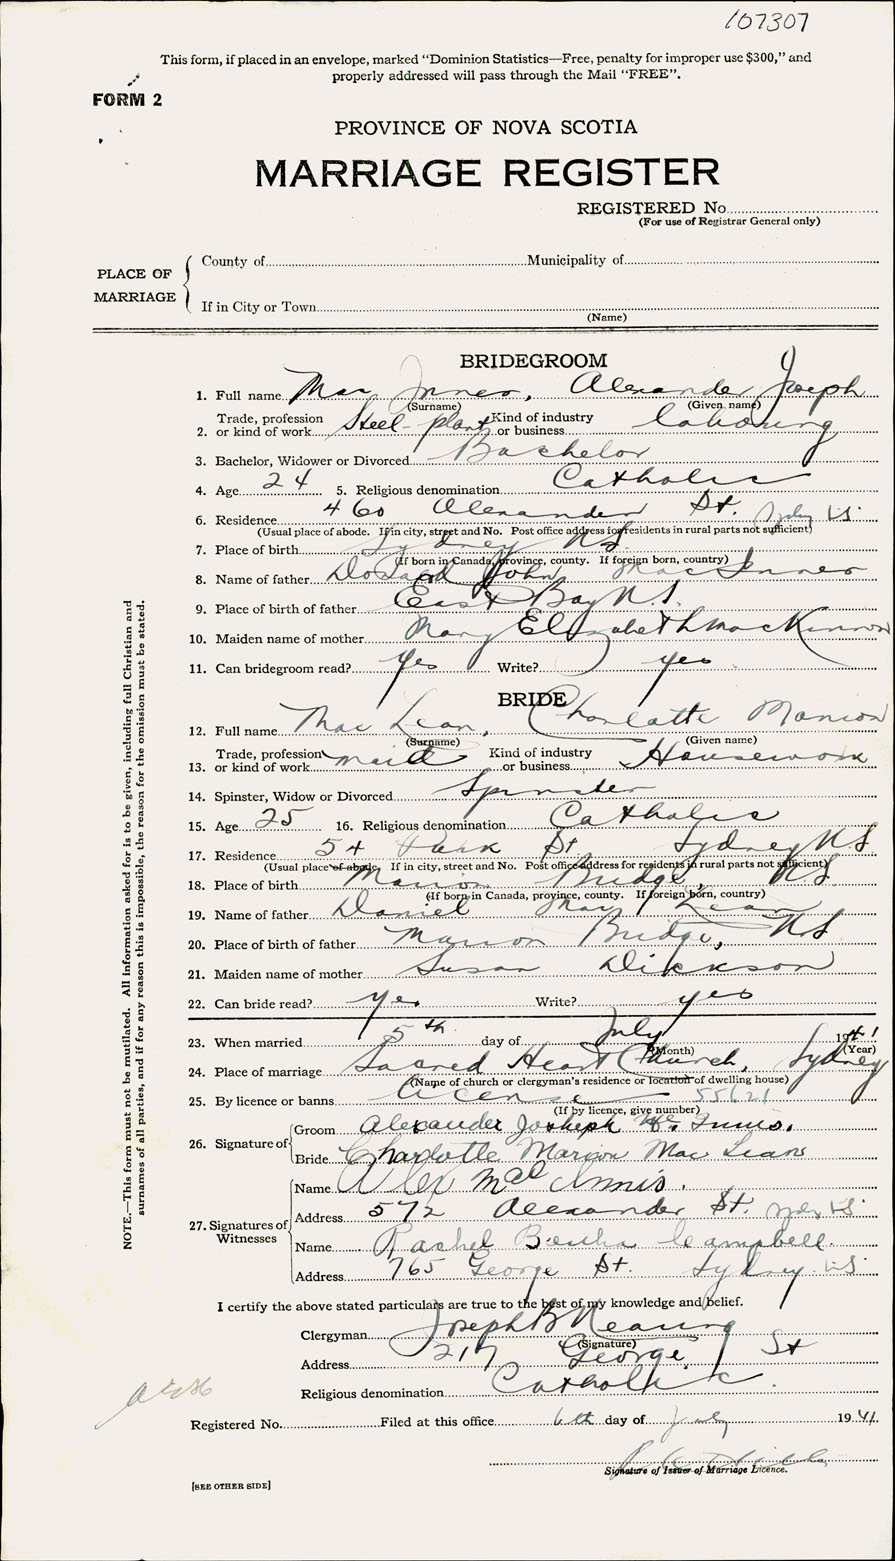 107307
This form, if placed in an envelope, marked “Dominion Statistics—Free, penalty for improper use $300,” and
properly addressed will pass through the Mail “FREE”.
FORM 2
PROVINCE OF NOVA SCOTIA
MARRIAGE REGISTER
REGISTERED No.
(For use of Registrar General only)
PLACE OF MARRIAGE
County of Municipality of
If in City or Town
(Name)
BRIDEGROOM
1. Full name Mac Innes, Alexander Joseph
(Surname) (Given name)
2. Trade, profession or kind of work Steel plant Kind of industry or business labouring
3. Bachelor, Widower or Divorced Bachelor
4. Age 24 5. Religious denomination Catholic
6. Residence 460 Alexander St. Sydney NS
(Usual place of abode. If in city, street and No. Post office address for residents in rural parts not sufficient)
7. Place of birth Sydney NS
(If born in Canada, province, county. If foreign born, country)
8. Name of father John MacInnes
9. Place of birth of father East Bay N.S.
10. Maiden name of mother Mary Elizabeth MacKinnon
11. Can bridegroom read? Yes Write? yes
BRIDE
12. Full name Mac Lean, Charlotte Marion
(Surname) (Given name)
13. Trade, profession or kind of work maid Kind of industry or business Housework
14. Spinster, Widow or Divorced Spinster
15. Age 25 16. Religious denomination Catholic
17. Residence 54 St Sydney NS
(Usual place of abode. If in city, street and No. Post office address for residents in rural parts not sufficient)
18. Place of birth Marion Bridge, N.S.
(If born in Canada, province, county. If foreign born, country)
19. Name of father Daniel Mac Lean
20. Place of birth of father Marion Bridge, NS
21. Maiden name of mother Susan Dickson
22. Can bride read? yes Write? yes
23. When married 5th day of July 1941
(Month) (Year)
24. Place of marriage Sacred Heart Church, Sydney
(Name of church or clergyman's residence or location of dwelling house)
25. By licence or banns License 55621
(If by licence, give number)
26. Signature of Groom Alexander Josheph Mc Innis.
Bride Charlotte Marion Mac Lean
27. Signatures of Witnesses
Name Alex Mac Innis.
Address 572 Alexander St. Syd. NS
Name Rachel Bertha Campbell.
Address 765 George St. Sydney. NS
I certify the above stated particulars are true to the best of my knowledge and belief.
Clergyman Joseph B
(Signature)
Address 217 George St
Religious denomination Catholic.
Registered No. Filed at this office 6th day of July 1941
Signature of Issuer of Marriage Licence.
[SEE OTHER SIDE]
NOTE.—This form must not be mutilated. All information asked for is to be given, including full Christian and
surnames of all parties, and if for any reason this is impossible, the reason for the omission must be stated.